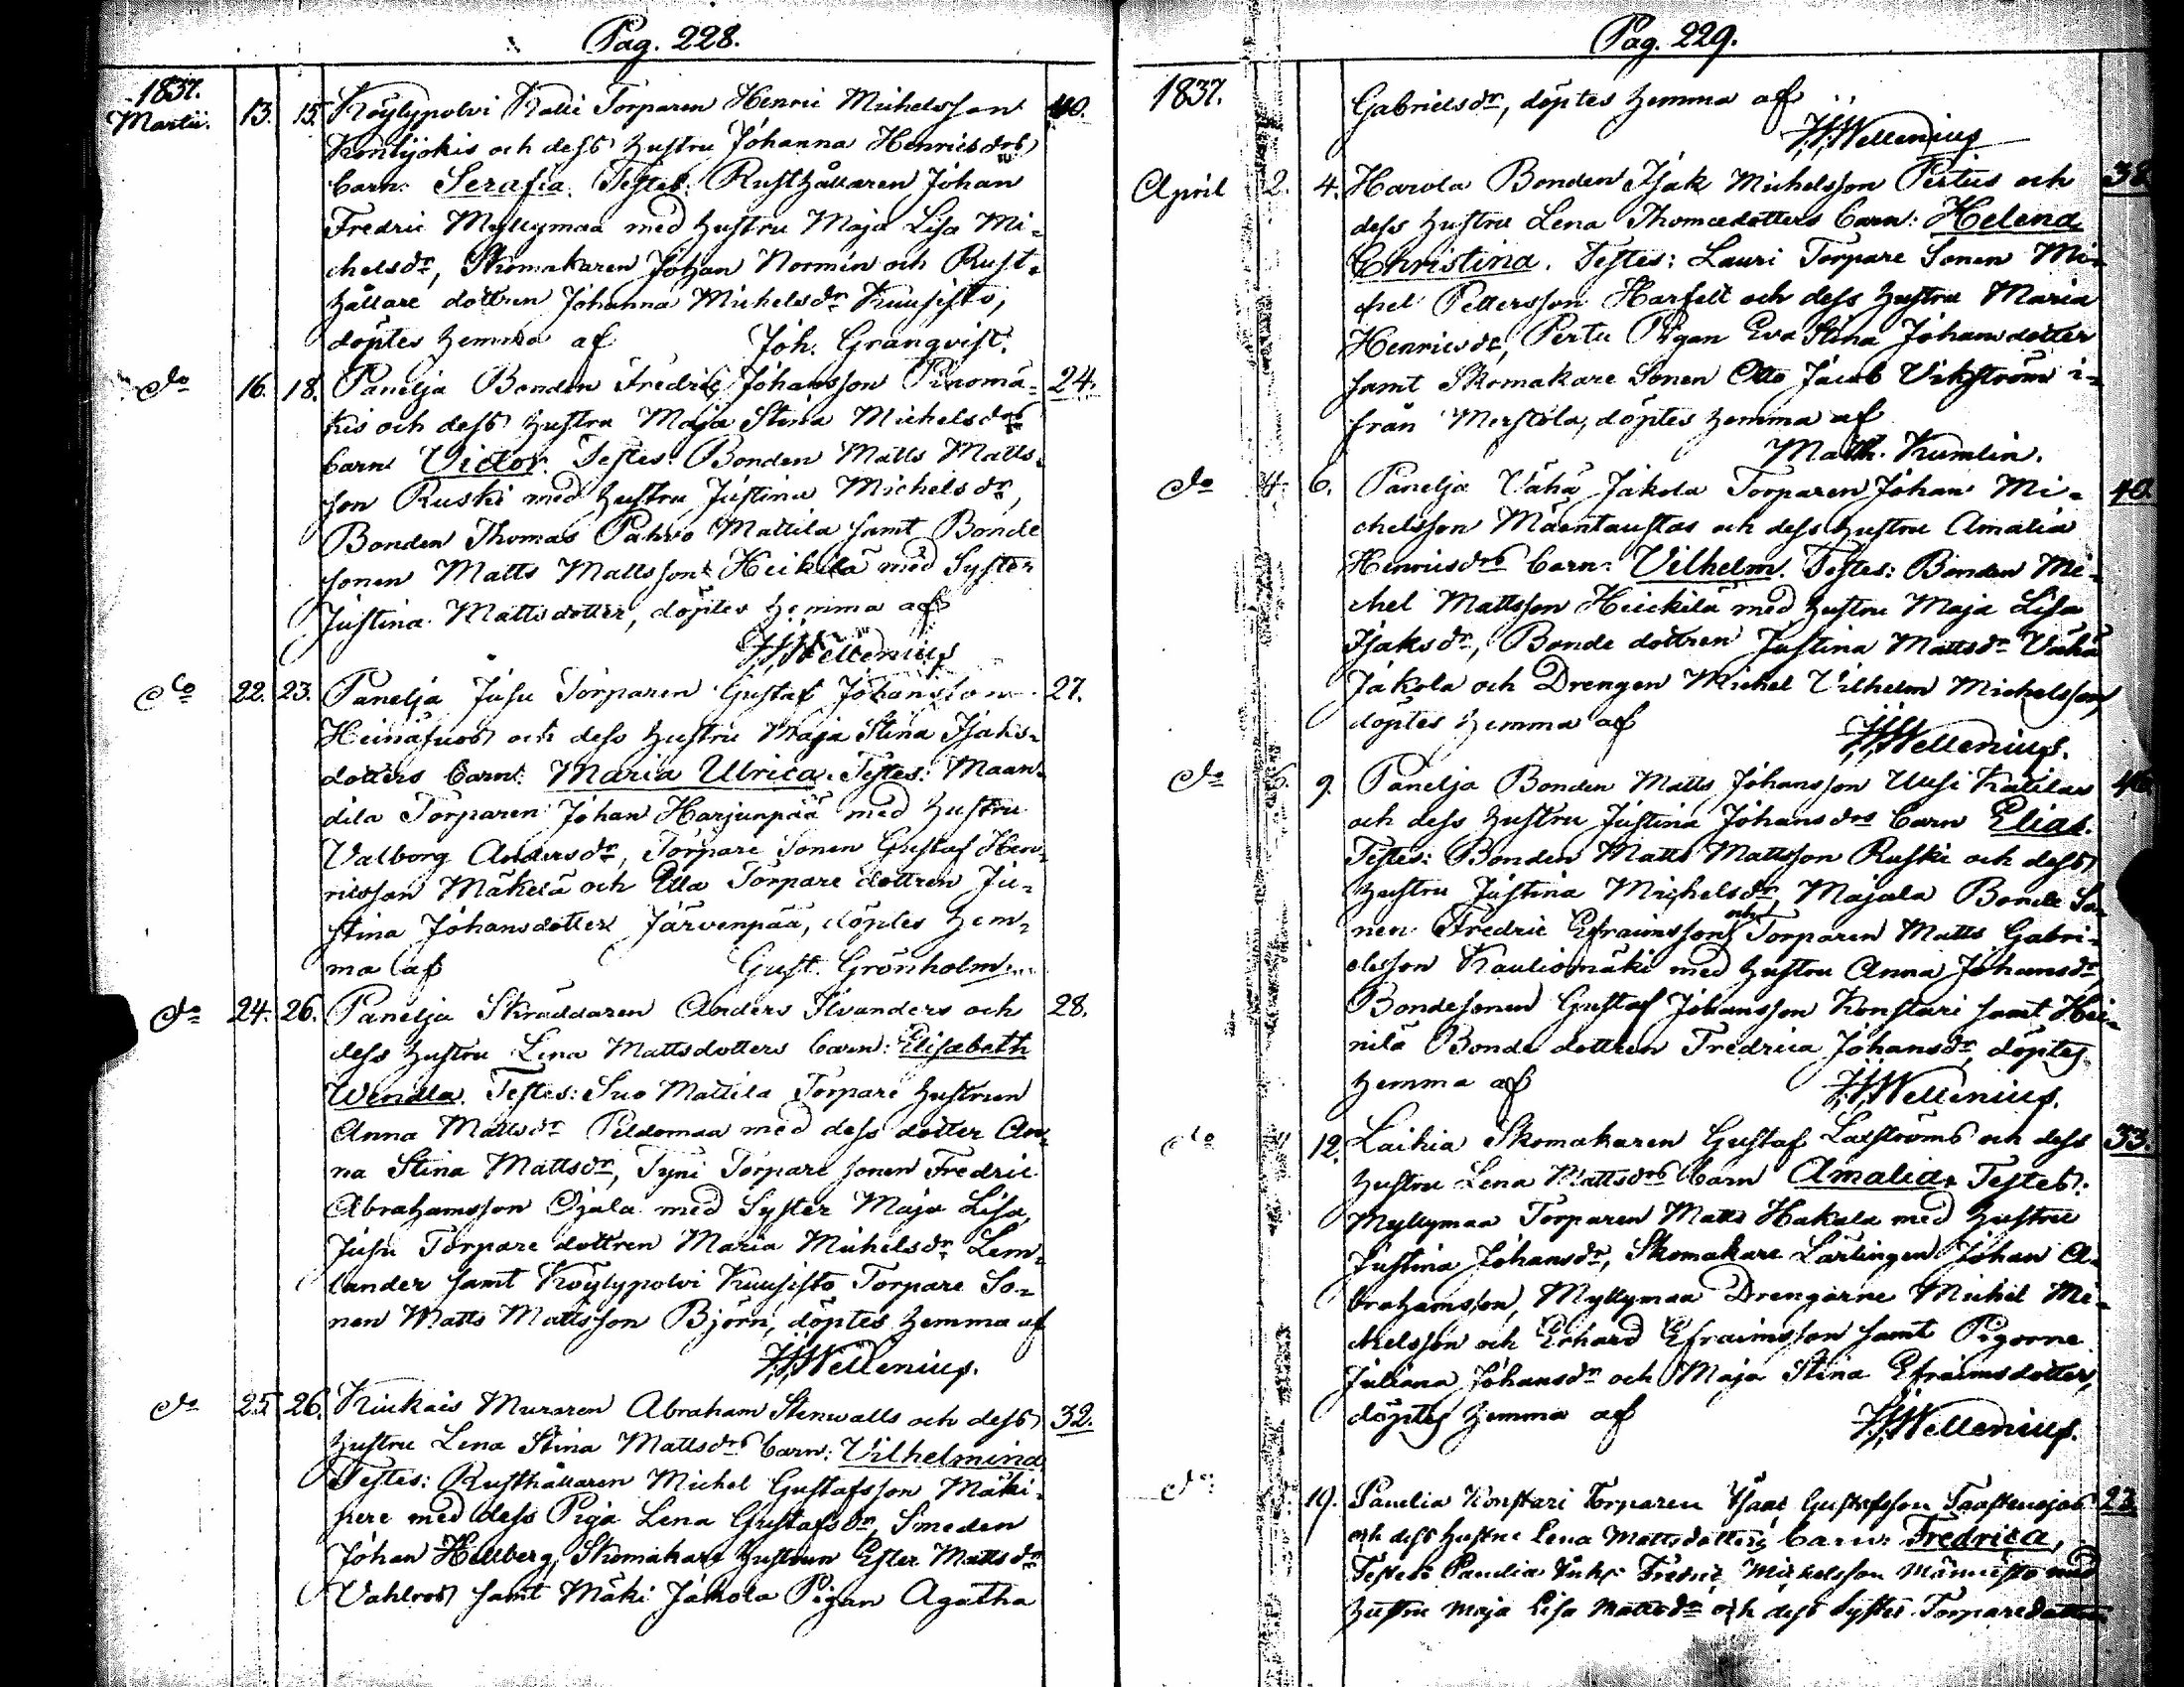 Pag. 228.
1837.
Martii. 13. 15. Köylypolvi Torparen Henric Michelsson 40.
Kontijokis och dess hustru Johanna Henricsdrs
barn: Serafia. Testes: Rusthållaren Johan
Fredric Myllymaa med hustru Maja Lisa Mi-
chelsdr, Skomakaren Johan Normén och Rust-
hållare dottren Johanna Michelsdr Kuusisto,
döptes hemma af Joh. Granqvist.
do 16. 18. Panelja Bonden Fredric Johansson Pinomä- 24.
kis och dess hustru Maja Stina Michelsdrs
barn Victor. Testes: Bonden Matts Matts-
son Ruski med hustru Justina Michelsdr,
Bonden Thomas Pahvo Mattila samt Bonde
sonen Matts Mattsson Heikilä med Syster
Justina Mattsdotter, döptes hemma af
Wellenius
do 22. 23. Panelja Jusu Torparen Gustaf Johansson 27.
Heinäsuos och dess hustru Maja Stina Isaks-
dotters barn: Maria Ulrica. Testes: Maan-
dila Torparen Johan Harjunpää med hustru
Valborg Andersdr, Torpare Sonen Gustaf Hen-
ricsson Mäkelä och Torpare dottren Ju-
stina Johansdotter Järvenpää, döptes hem-
ma af Gust. Grönholm.
do 24. 26. Panelja Skräddaren Anders Ilvanders och 28.
dess hustru Lena Mattsdotters barn: Elisabeth
Wendla. Testes: Suo Mattila Torpare hustrun
Anna Mattsdr Peldomaa med dess dotter An-
na Stina Mattsdr, Tyni Torpare sonen Fredric
Abrahamsson Ojala med Syster Maja Lisa,
Jusu Torpare dottren Maria Michelsdr Lem-
lander samt Köylypolvi Kuusisto Torpare So-
nen Matts Mattsson Björn, döptes hemma af
Wellenius.
do 25. 26. Kiukais Muraren Abraham Stenwalls och dess 32.
hustru Lena Stina Mattsdrs barn: Vilhelmina
Testes: Rusthållaren Michel Gustafsson Mäki-
pere med dess Piga Lena Gustafsdr, Smeden
Johan Hellberg, Skomakare hustrun Ester Mattsdr
Vahlros samt Mäki Jakola Pigan Agatha
Pag. 229.
1837. Gabrielsdr, döptes hemma af
Wellenius
April 2. 4. Harola Bonden Isak Michelsson Pertus och 38
dess hustru Lena Thomædotters barn: Helena
Christina. Testes: Lauri Torpare Sonen Mi-
chel Pettersson Harfelt och dess hustru Maria
Henricsdr, Pertu Pigan Eva Stina Johansdotter
samt Skomakare Sonen Otto Jacob Vikström i-
från Merstola, döptes hemma af
Math. Kumlin.
do 4. 6. Panelja Vähä Jakola Torparen Johan Mi- 40.
chelsson Mäentaustas och dess hustru Amalia
Henricsdrs barn: Vilhelm. Testes: Bonden Mi-
chel Mattsson Heickilä med hustru Maja Lisa
Isaksdr, Bonde dottren Justina Mattsdr Vähä
Jakola och Drengen Michel Vilhelm Michelsson,
döptes hemma af Wellenius.
do 6. 9. Panelja Bonden Matts Johansson Uusi Katilas 46.
och dess hustru Justina Johansdrs barn Elias.
Testes: Bonden Matts Mattsson Ruski och dess
hustru Justina Michelsdr, Majala Bonde So-
nen Fredric Efraimsson och Torparen Matts Gabri-
elsson Kauliomäki med hustru Anna Johansdr,
Bondesonen Gustaf Johansson Konstari samt Hei-
nilä Bonde dottren Fredrica Johansdr, döptes
hemma af Wellenius.
do 12. Laihia Skomakaren Gustaf Laxströms och dess 33.
hustru Lena Mattsdrs barn Amalia. Testes:
Myllymaa Torparen Matts Hakala med hustru
Justina Johansdr, Skomakare Lärlingen Johan A-
brahamsson, Myllymaa Drengarne Michel Mi-
chelsson och Erhard Efraimsson samt Pigorne
Juliana Johansdr och Maja Stina Efraimsdotter,
döptes hemma af Wellenius.
do 19. Panelia Konstari Torparen Isaac Gustafsson 23.
och dess hustru Lena Mattsdotters barn: Fredrica,
Testes: Panelia Fredric Michelsson Männistö med
hustru Maja Lisa Mattsdr och dess Syster Torparedottren